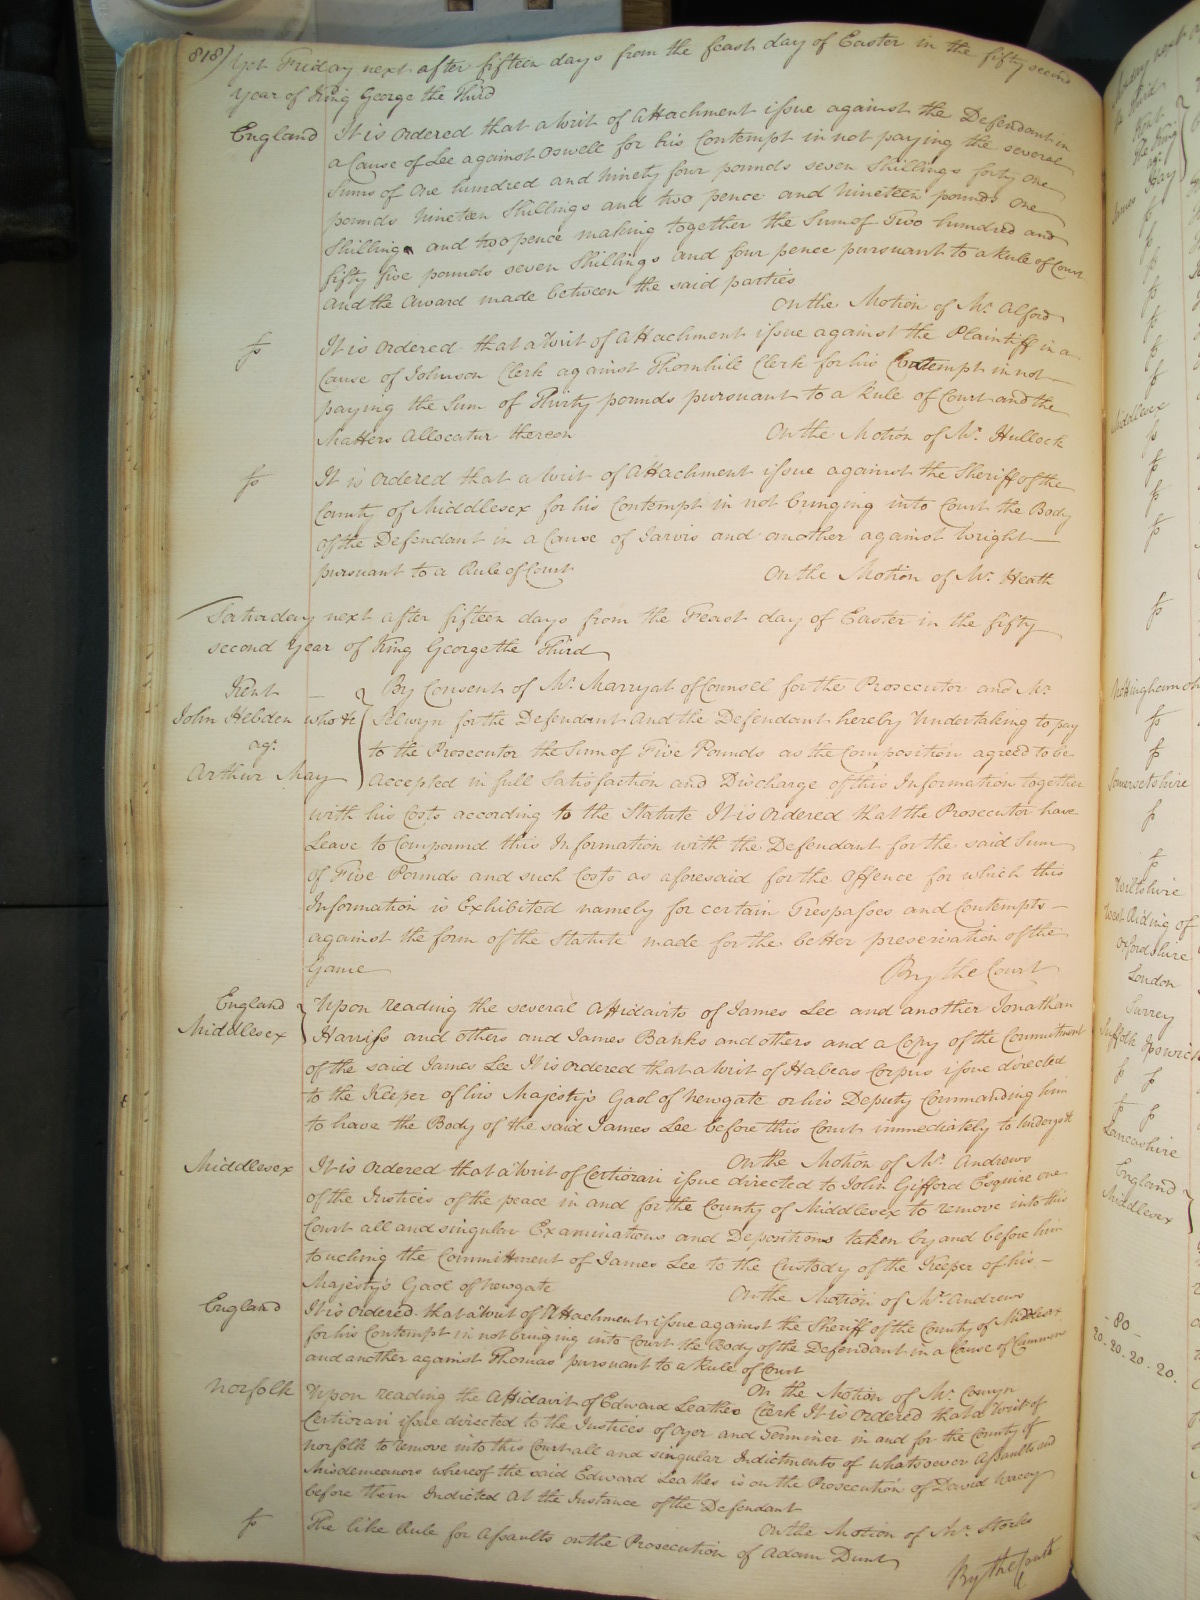 818) Yet Friday next after fifteen days from the feast day of Easter in the fifty second
Year of King George the Third
England It is ordered that a Writ of Attachment issue against the Defendant in
a Cause of Lee against Oswell for his Contempt in not paying the several
Sums of One hundred and Ninety four pounds seven Shillings forty one
pounds Nineteen Shillings and two pence and Nineteen pounds one
Shilling and two pence making together the Sum of Two hundred and
fifty five pounds seven Shillings and four pence pursuant to a Rule of Court
and the Award made between the said parties
On the Motion of Mr. Alford
It is ordered that a Writ of Attachment issue against the Plaintiff in a
Cause of Johnson Clerk against Thornhill Clerk for his Contempt in not
paying the Sum of Thirty pounds pursuant to a Rule of Court and the
Masters Allocatur thereon On the Motion of Mr. Hullock
It is ordered that a Writ of Attachment issue against the Sheriff of the
County of Middlesex for his Contempt in not bringing into Court the Body
of the Defendant in a Cause of Jarvis and another against Wright
pursuant to a Rule of Court On the Motion of Mr. Heath
Saturday next after fifteen days from the Feast day of Easter in the fifty
second Year of King George the Third
Kent By Consent of Mr. Marryat of Counsel for the Prosecutor and Mr.
John Hebden who &c Selwyn for the Defendant And the Defendant hereby Undertaking to pay
agt. to the Prosecutor the Sum of Five Pounds as the Composition agreed to be
Arthur May Accepted in full Satisfaction and Discharge of this Information together
with his Costs according to the Statute It is ordered that the Prosecutor have
Leave to Compound this Information with the Defendant for the said Sum
of Five Pounds and such Costs as aforesaid for the Offence for which this
Information is Exhibited namely for certain Trespasses and Contempts
against the form of the Statute made for the better preservation of the
Game By the Court
England Upon reading the several Affidavits of James Lee and another Jonathan
Middlesex Harriss and others and James Banks and others and a Copy of the Commitment
of the said James Lee It is ordered that a Writ of Habeas Corpus issue directed
to the Keeper of his Majesty's Gaol of Newgate or his Deputy Commanding him
to have the Body of the said James Lee before this Court immediately to Undergo &c
On the Motion of Mr. Andrews
Middlesex It is ordered that a Writ of Certiorari issue directed to John Gifford Esquire one
of the Justices of the peace in and for the County of Middlesex to remove into this
Court all and singular Examinations and Depositions taken by and before him
touching the Commitment of James Lee to the Custody of the Keeper of his
Majesty's Gaol of Newgate On the Motion of Mr. Andrews
England It is ordered that a Writ of Attachment issue against the Sheriff of the County of Middlesex
for his Contempt in not bringing into Court the Body of the Defendant in a Cause of
and another against Thomas pursuant to a Rule of Court
On the Motion of Mr. Comyn
Norfolk Upon reading the Affidavit of Edward Leathes Clerk It is ordered that a Writ of
Certiorari issue directed to the Justices of Oyer and Terminer in and for the County of
Norfolk to remove into this Court all and singular Indictments of whatsoever Assaults and
Misdemeanors whereof the said Edward Leathes is on the Prosecution of David
before them Indicted At the Instance of the Defendant
On the Motion of Mr. Storks
The like Rule for Assaults on the Prosecution of Adam Dunt
By the Court
Middlesex
Nottinghamsh
Somersetshire
Wiltshire
West Riding of
Oxfordshire
London
Surrey
Suffolk Ipswich
Lancashire
England
Middlesex
80
20. 20. 20. 20.